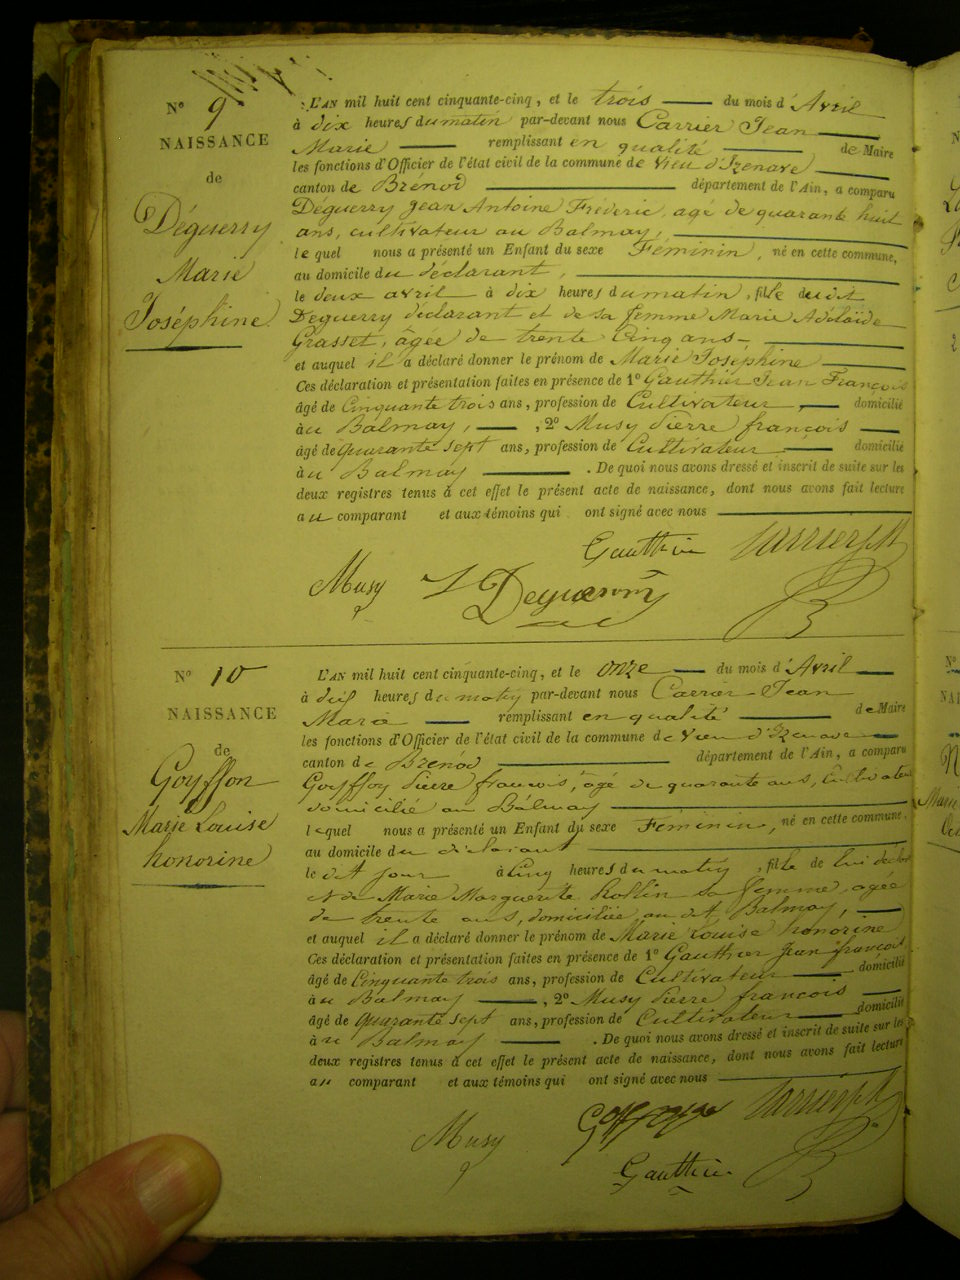 N° 9
NAISSANCE
de
Déguerry
Marie
Joséphine
L'AN mil huit cent cinquante-cinq, et le trois du mois d'Avril
à dix heures du matin par-devant nous Carrier Jean
Marie remplissant en qualité de Maire
les fonctions d'Officier de l'état civil de la commune de Vieu d'Izenave
canton de Brénod département de l'Ain, a comparu
Déguerry Jean Antoine Fréderic, agé de quarante huit
ans, cultivateur au Balmay,
lequel nous a présenté un Enfant du sexe Féminin, né en cette commune,
au domicile du déclarant,
le deux avril à dix heures du matin, fille du dit
Deguerry déclarant et de sa femme Marie Adélaïde
Grasset, âgée de trente cinq ans
et auquel il a déclaré donner le prénom de Marie Joséphine
Ces déclaration et présentation faites en présence de 1° Gauthier Jean François
âgé de Cinquante trois ans, profession de Cultivateur, domicilié
au Balmay, , 2° Musy Pierre françois
âgé de quarante sept ans, profession de Cultivateur domicilié
au Balmay . De quoi nous avons dressé et inscrit de suite sur les
deux registres tenus à cet effet le présent acte de naissance, dont nous avons fait lecture
au comparant et aux témoins qui ont signé avec nous
Gauthier Carrier J M
Musy Deguerry
N° 10
NAISSANCE
de
Goyffon
Marie Louise
honorine
L'AN mil huit cent cinquante-cinq, et le onze du mois d'Avril
à dix heures du matin par-devant nous Carrier Jean
Marie remplissant en qualité de Maire
les fonctions d'Officier de l'état civil de la commune de Vieu d'Izenave
canton de Brénod département de l'Ain, a comparu
Goyffon Pierre françois, âgé de quarante ans, Cultivateur
domicilié au Balmay
lequel nous a présenté un Enfant du sexe Féminin, né en cette commune.
au domicile du déclarant
le dit jour à Cinq heures du matin, fille de lui déclarant
et de Marie Marguerite Rollin sa femme, agée
de trente ans, domiciliée au dit Balmay,
et auquel il a déclaré donner le prénom de Marie Louise honorine
Ces déclaration et présentation faites en présence de 1° Gauthier Jean françois
âgé de Cinquante trois ans, profession de Cultivateur domicilié
au Balmay , 2° Musy Pierre françois
âgé de quarante sept ans, profession de Cultivateur domicilié
au Balmay . De quoi nous avons dressé et inscrit de suite sur les
deux registres tenus à cet effet le présent acte de naissance, dont nous avons fait lecture
au comparant et aux témoins qui ont signé avec nous
Musy Goyffon Carrier J M
Gauthier